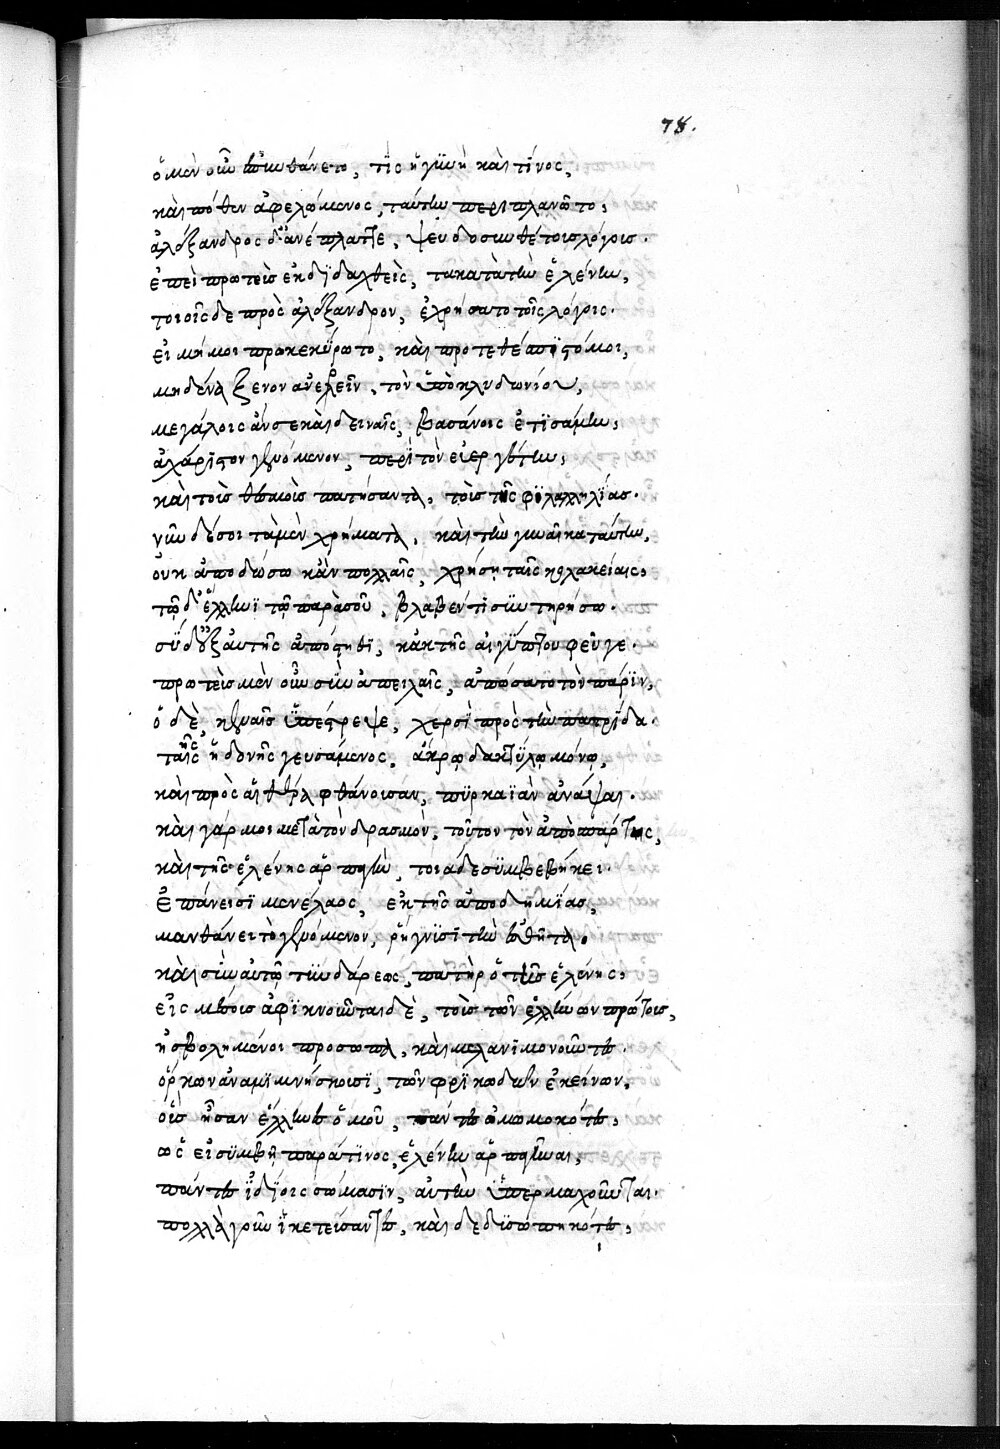 78.
ὁ μὲν οὖν ἐπυνθάνετο, τίς ἡ γυνὴ καὶ τίνος,
καὶ πόθεν ἀφελόμενος, ταύτην περιπλανῶτο,
ἀλέξανδρος δ' ἀνέπλαττε, ψευδοσυνθέτοις λόγοις.
ἐπεὶ πρωτεὺς ἐκδιδαχθεὶς, τὰ κατὰ τὴν ἑλένην,
τοιοῖσδε πρὸς ἀλέξανδρον, ἐχρήσατο τοῖς λόγοις.
εἰ μή μοι προκεκύρωτο, καὶ προτεθέσπιστό μοι,
μηδένα ξένον ἀνελεῖν, τὸν ὑπὸ κλυδωνίου,
μεγάλοις ἄν σε καὶ δειναῖς, βασάνοις ἐτισάμην,
ἀχάριστον γενόμενον, περὶ τὸν εὐεργέτην,
καὶ τοὺς θεσμοὺς πατήσαντα, τοὺς τῆς φιλαλληλίας.
νῦν δέ σοι τὰ μὲν χρήματα, καὶ τὴν γυναῖκα ταύτην,
οὐκ ἀποδώσω κἂν πολλαῖς, χρήσῃ ταῖς κολακείαις,
τῷ δ' ἕλληνι τῷ παρὰ σοῦ, βλαβέντι συντηρήσω.
σὺ δ' ἐξ αὐτῆς ἀπόστηθι, κἀκ τῆς αἰγύπτου φεῦγε.
πρωτεὺς μὲν οὖν σὺν ἀπειλαῖς, ἀπώσατο τὸν πάριν,
ὁ δὲ, κεναῖς ὑπέστρεψε, χερσὶ πρὸς τὴν πατρίδα.
ταῖς ἡδονῆς γευσάμενος, ἄκρῳ δακτύλῳ μόνῳ,
καὶ πρὸς αἰθέρα φθάνουσαν, πυρκαϊὰν ἀνάψαι.
καὶ γάρ μοι μετὰ τὸν δρασμὸν, τοῦτον τὸν ἀπὸ σπάρτης,
καὶ τῆς ἑλένης ἁρπαγὴν, τοιάδε συμβεβήκει.
ἐπάνεισι μενέλαος, ἐκ τῆς ἀποδημίας,
μανθάνει τὸ γενόμενον, ῥήγνυσι τὴν ἐσθῆτα,
καὶ σὺν αὐτῷ τυνδάρεως, πατὴρ ὁ τῆς ἑλένης,
εἰς μέσους ἀφικνοῦνται δὲ, τοὺς τῶν ἑλλήνων πρώτους,
ἠσβολημένοι πρόσωπα, καὶ μελανειμονοῦντες.
ὅρκων ἀναμιμνήσκουσι, τῶν φρικωδῶν ἐκείνων,
οὓς ἦσαν ἕλληνες ὁμοῦ, πάντες ὀμωμοκότες,
ὡς εἰ συμβῇ παρά τινος, ἑλένην ἁρπαγῆναι,
πάντες ἰδίοις σώμασιν, αὐτὴν ὑπερμαχοῦνται.
πολλὰ γοῦν ἱκετεύσαντες, καὶ δεδυσωπηκότες,